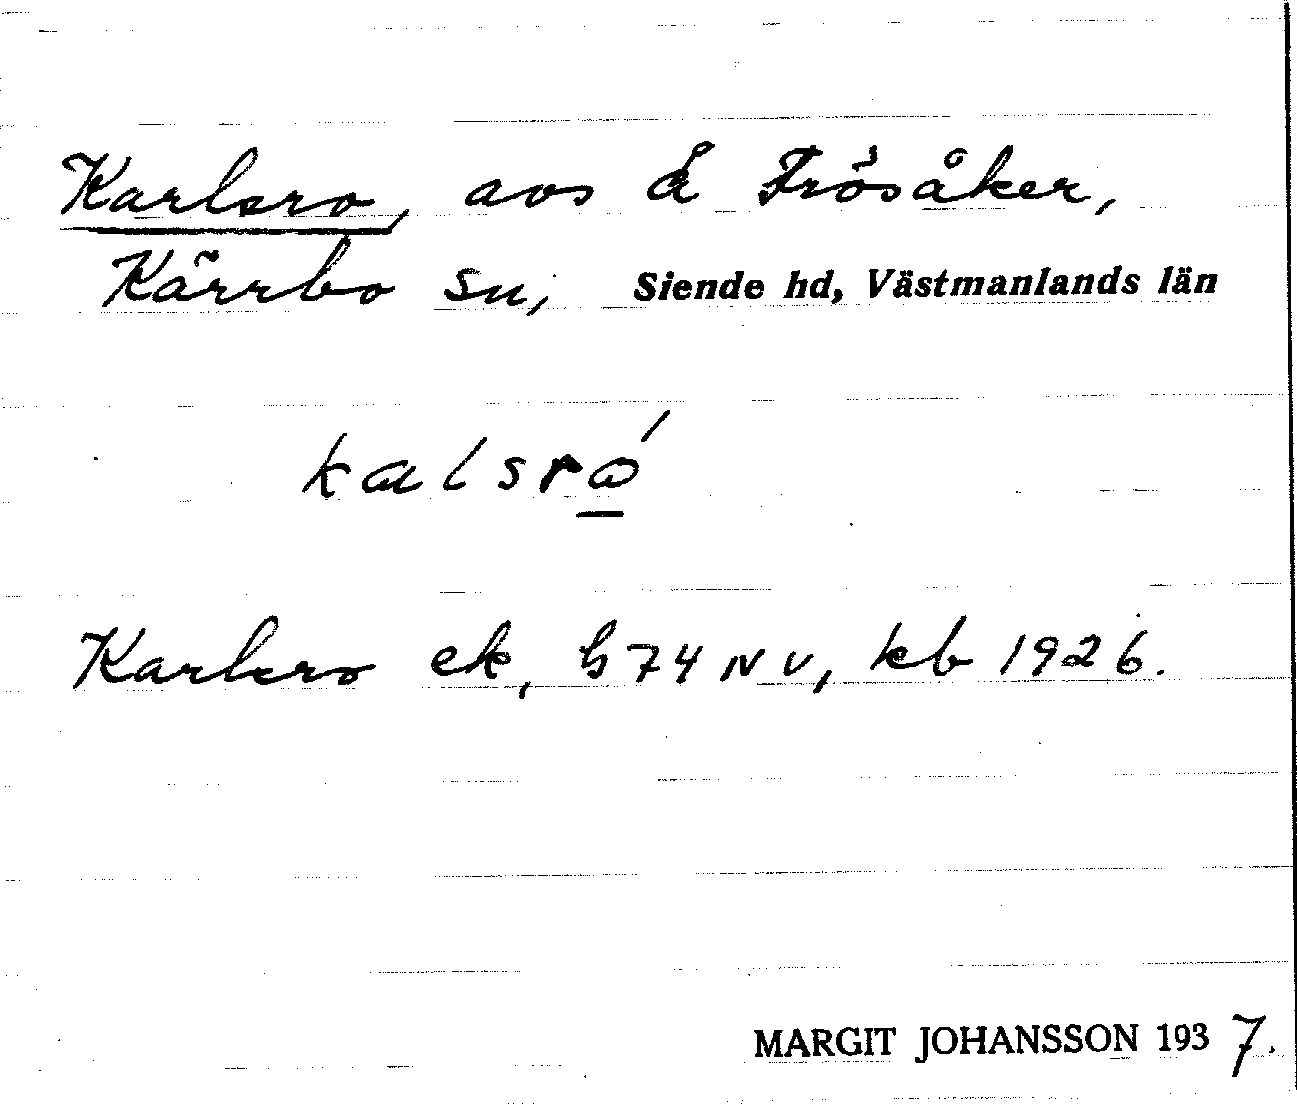 Karlsro, avs å Frösåker,
Kärrbo sn, Siende hd, Västmanlands län
kalsrώ
Karlsro ek, h74NV, kb 1926.
MARGIT JOHANSSON 1937.